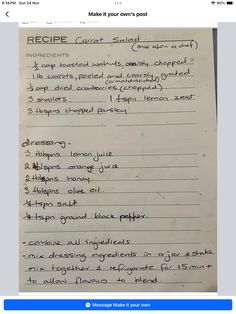 8:06 PM Sun 24 Nov
90%
Make it your own's post
RECIPE Carrot Salad
(once upon a chef)
INGREDIENTS
½ cup toasted walnuts, coarsely chopped
1 lb carrots, peeled and coarsely grated
½ cup dried cranberries (chopped)
3 shallots. 1 tspn lemon zest
3 tbspns chopped parsley
dressing -
3 tbspns lemon juice
2 tbspns orange juice
2 tbspns honey
5 tbspns olive oil
tspn salt
tspn ground black pepper.
- combine all ingredients
- mix dressing ingredients in a jar & shake
mix together & refrigerate for 15 min +
to allow flavours to blend.
Message Make it your own